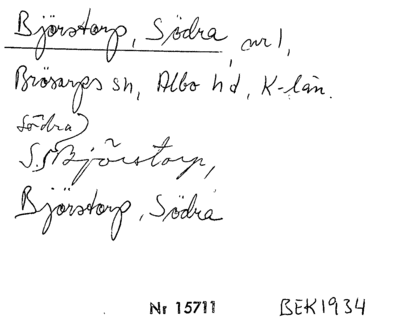 Björstorp, Södra, nr 1,
Brösarps sn, Albo hd, K-län.
Södra
S. Björstorp,
Björstorp, Södra
Nr 15711 BEK 1934